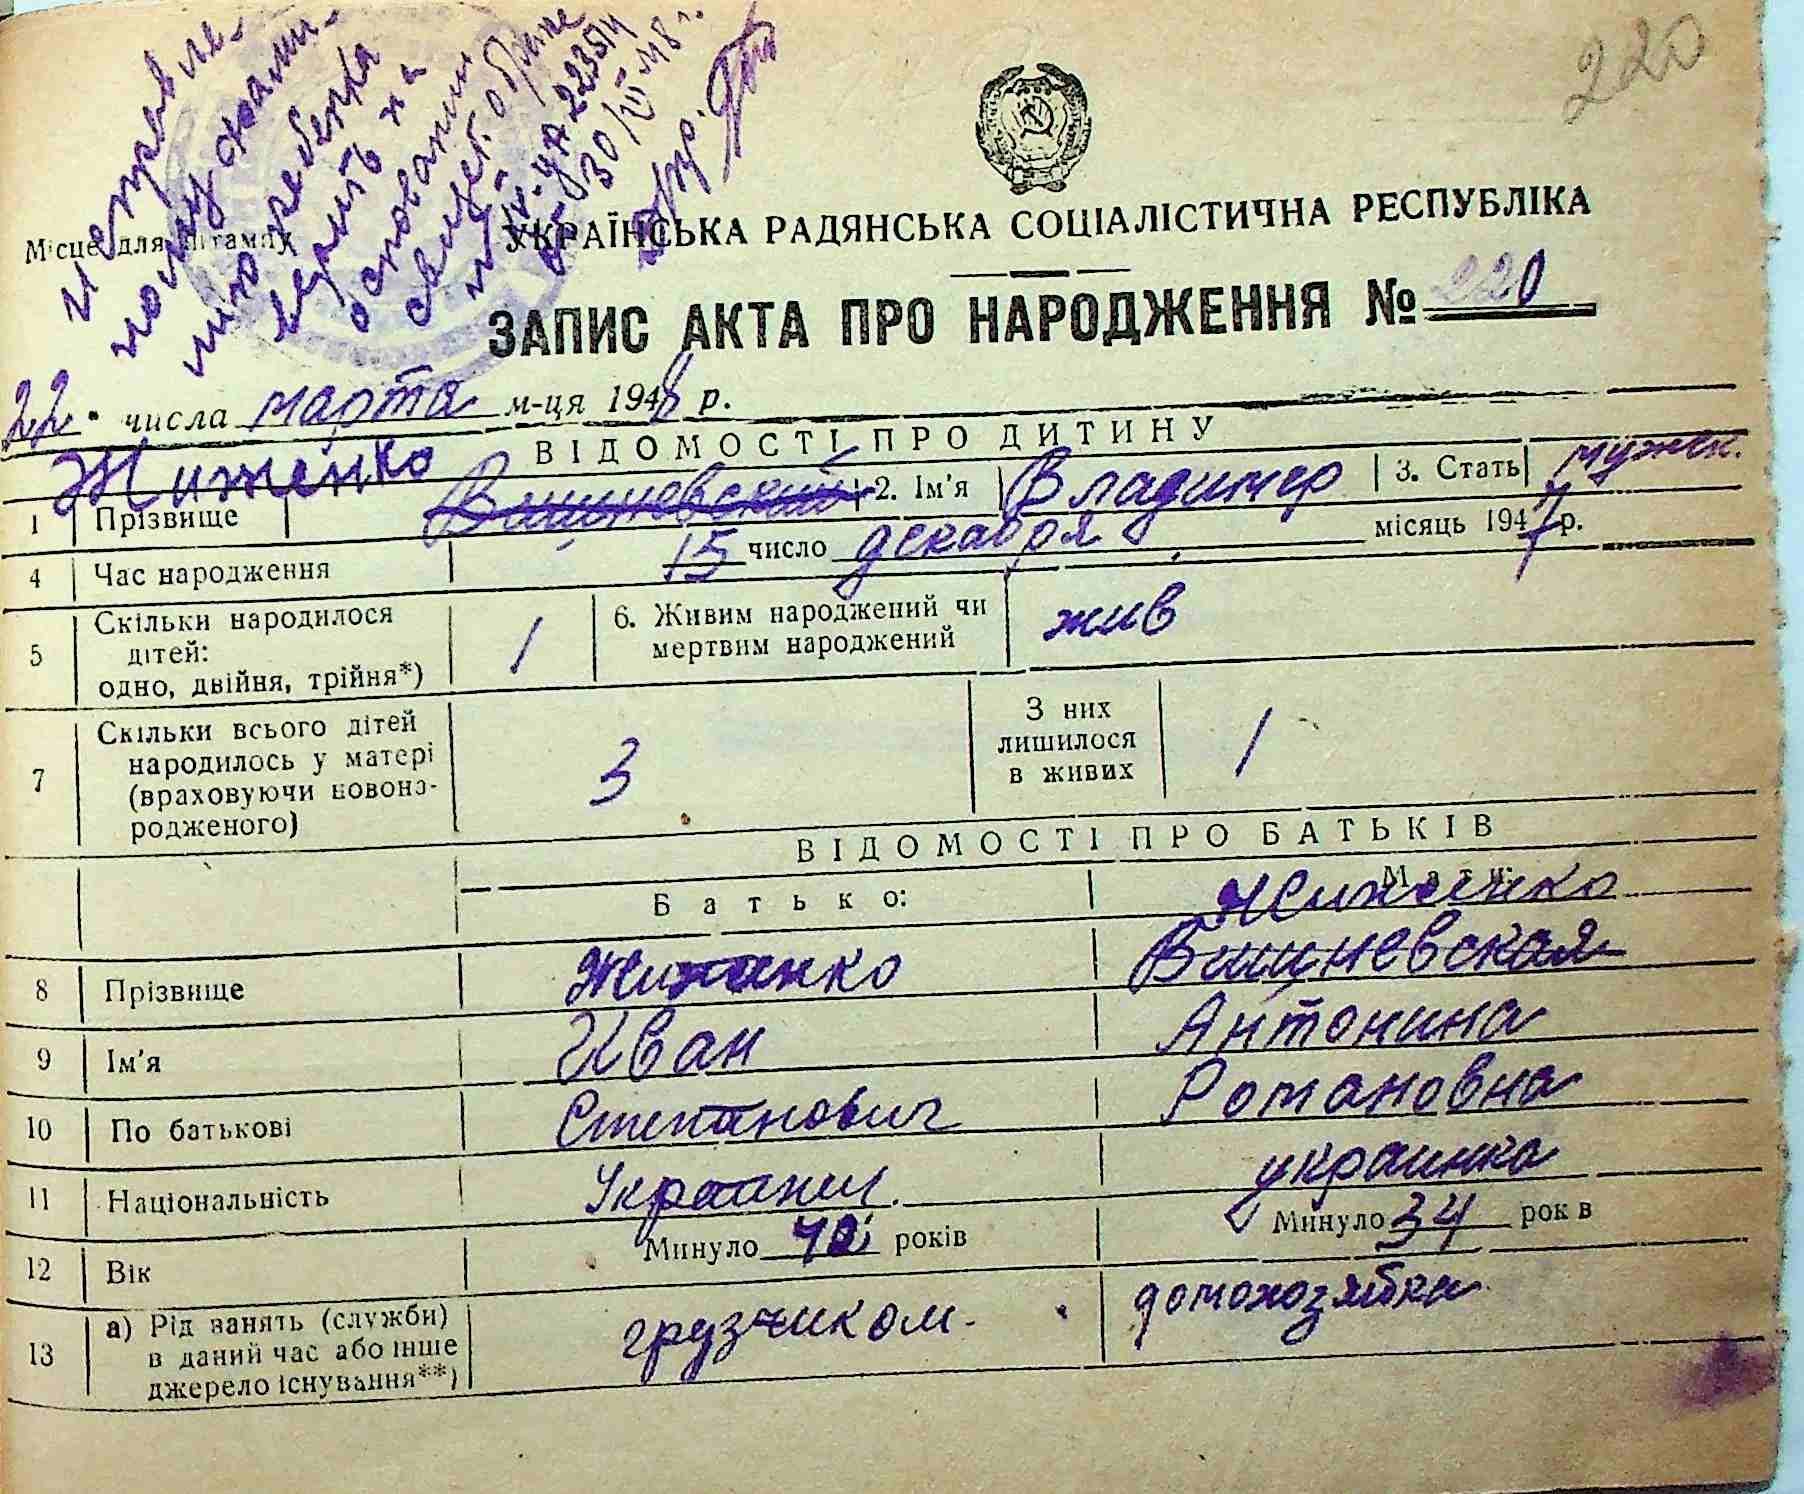 220
исправле-
ному фами-
лию ребенка
верить на
основании
свидет. о браке
30/III 48 г.
Місце для штампу
УКРАЇНСЬКА РАДЯНСЬКА СОЦІАЛІСТИЧНА РЕСПУБЛІКА
ЗАПИС АКТА ПРО НАРОДЖЕННЯ № 220
22 числа марта м-ця 1948 р.
ВІДОМОСТІ ПРО ДИТИНУ
1 Прізвище Жиженко Вишневский 2. Ім'я Владимер 3. Стать мужск.
4 Час народження 15 число декабря місяць 1947 р.
5 Скільки народилося
дітей:
одно, двійня, трійня*) 1
6. Живим народжений чи
мертвим народжений жив
7 Скільки всього дітей
народилось у матері
(враховуючи новона-
родженого) 3
З них
лишилося
в живих 1
ВІДОМОСТІ ПРО БАТЬКІВ
Батько: Мати:
Жиженко
8 Прізвище Жиженко Вишневская
9 Ім'я Иван Антонина
10 По батькові Степанович Романовна
11 Національність Украинец украинка
12 Вік Минуло 42 років Минуло 34 рок в
13 а) Рід занять (служби)
в даний час або інше
джерело існування**) грузчиком. домохозяйка